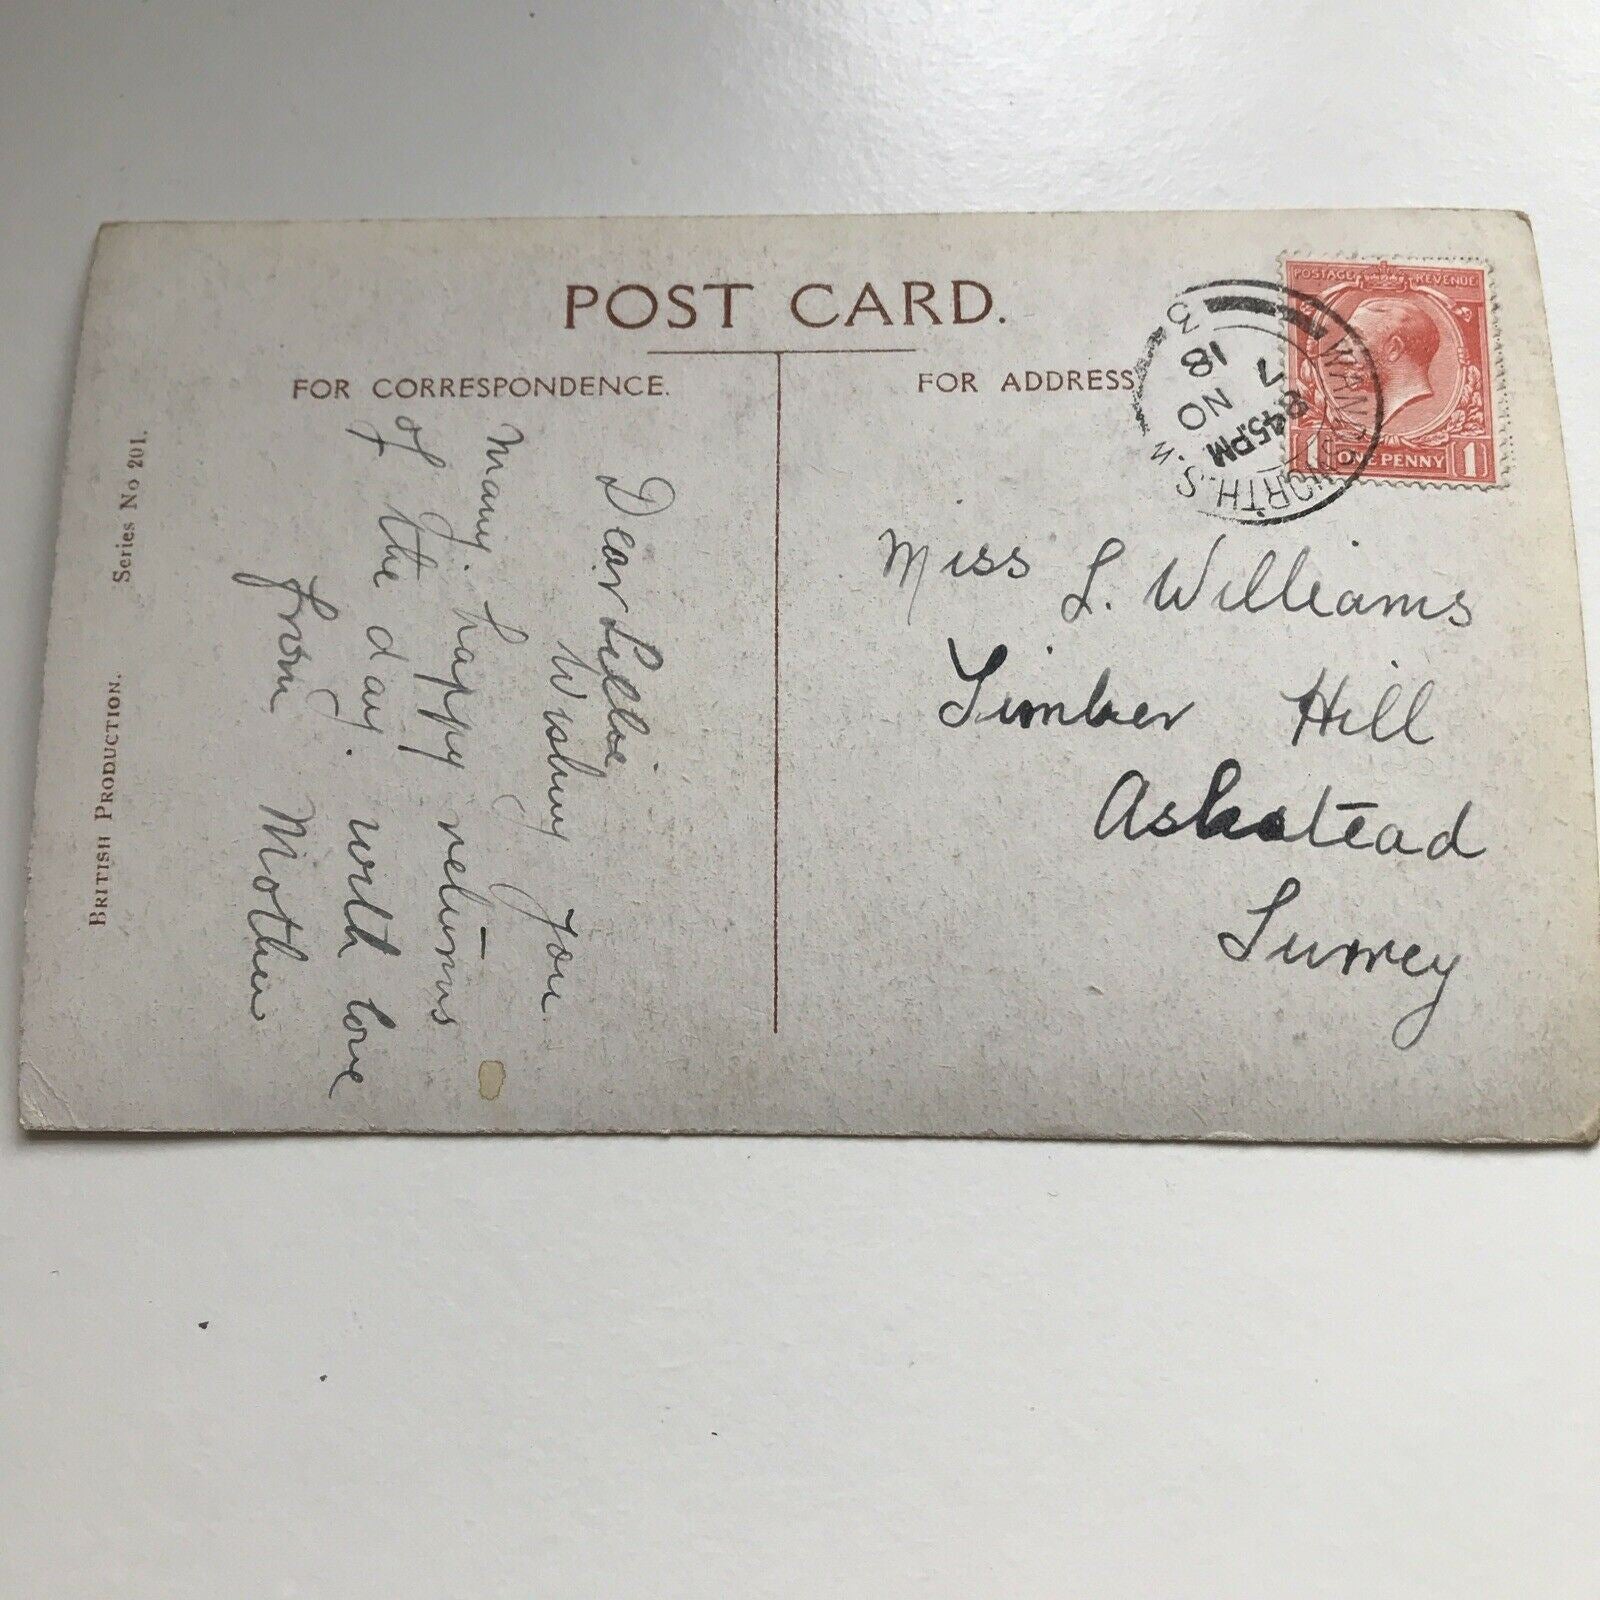 POST CARD.
FOR CORRESPONDENCE.
FOR ADDRESS
Dear Lillie,
Wishing you
many. happy returns
of the day. with love
from Mother
Miss L. Williams
Timber Hill
Ashstead
Surrey
POSTAGE REVENUE
1 ONE PENNY 1
WANDSWORTH. S.W.
8 45 PM
7 NO
18
3
Series No 201.
BRITISH PRODUCTION.